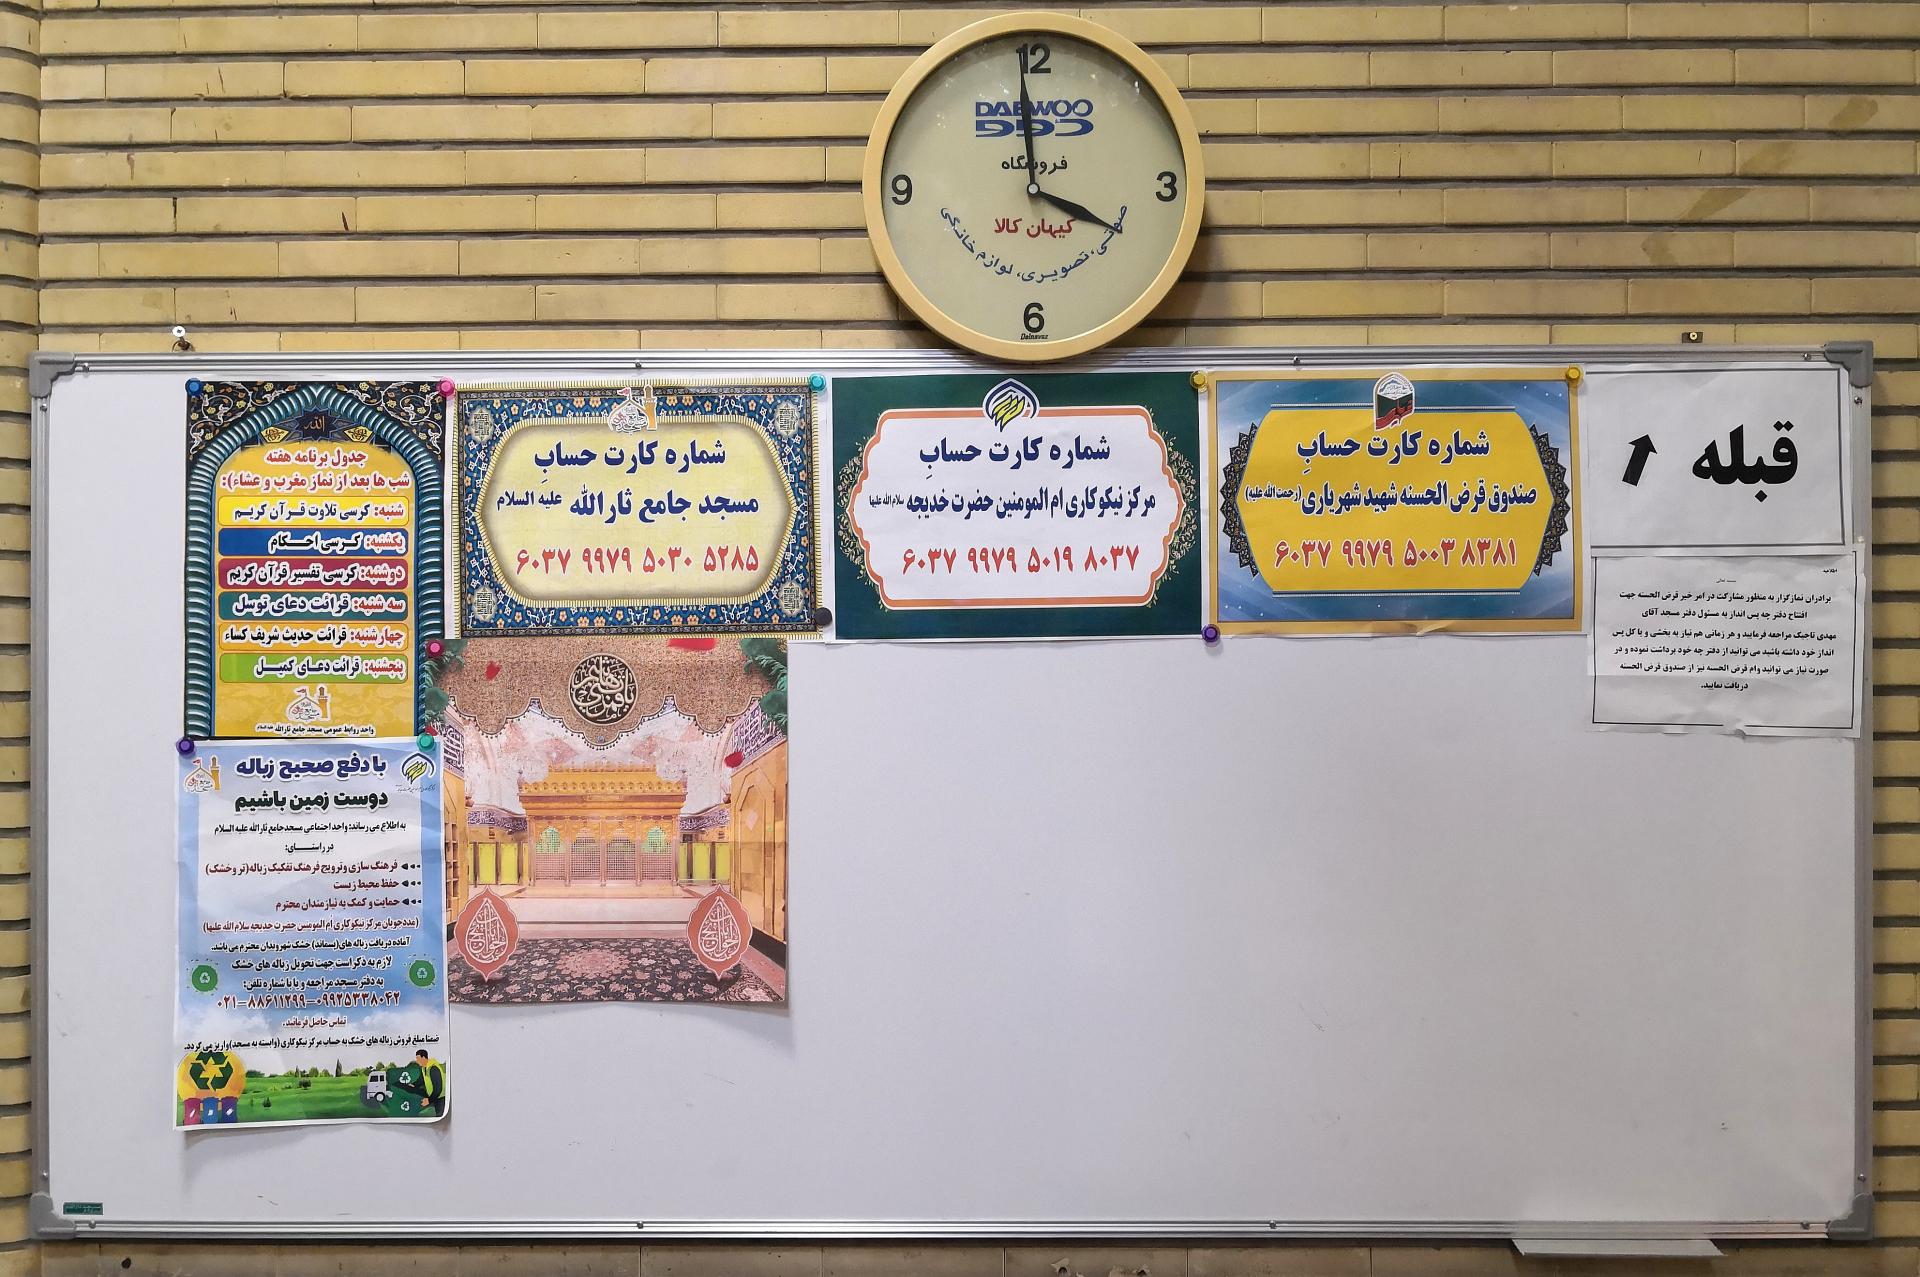 12
DAEWOO
دوو
فروشگاه
9
3
کیهان کالا
صوتی، تصویری، لوازم خانگی
6
Delnavaz
قبله
شماره کارت حسابِ
صندوق قرض الحسنه شهید شهریاری (رحمت الله علیه)
۶۰۳۷ ۹۹۷۹ ۵۰۰۳ ۸۳۸۱
شماره کارت حسابِ
مرکز نیکوکاری ام المومنین حضرت خدیجه سلام الله علیها
۶۰۳۷ ۹۹۷۹ ۵۰۱۹ ۸۰۳۷
شماره کارت حسابِ
مسجد جامع ثارالله علیه السلام
۶۰۳۷ ۹۹۷۹ ۵۰۳۰ ۵۲۸۵
الله
جدول برنامه هفته
شب ها بعد از نماز مغرب و عشاء):
شنبه: کرسی تلاوت قرآن کریم
یکشنبه: کرسی احکام
دوشنبه: کرسی تفسیر قرآن کریم
سه شنبه: قرائت دعای توسل
چهارشنبه: قرائت حدیث شریف کساء
پنجشنبه: قرائت دعای کمیل
واحد روابط عمومی مسجد جامع ثارالله علیه السلام
اطلاعیه
بسمه تعالی
برادران نمازگزار به منظور مشارکت در امر خیر قرض الحسنه جهت
افتتاح دفتر چه پس انداز به مسئول دفتر مسجد آقای
مهدی تاجیک مراجعه فرمایید و هر زمانی هم نیاز به بخشی و یا کل پس
انداز خود داشته باشید می توانید از دفتر چه خود برداشت نموده و در
صورت نیاز می توانید وام قرض الحسنه نیز از صندوق قرض الحسنه
دریافت نمایید.
با دفع صحیح زباله
دوست زمین باشیم
به اطلاع می رساند: واحد اجتماعی مسجد جامع ثارالله علیه السلام
در راستای:
فرهنگ سازی و ترویج فرهنگ تفکیک زباله(تر و خشک)
حفظ محیط زیست
حمایت و کمک به نیازمندان محترم
(مددجویان مرکز نیکوکاری ام المومنین حضرت خدیجه سلام الله علیها)
آماده دریافت زباله های(پسماند) خشک شهروندان محترم می باشد.
لازم به ذکر است جهت تحویل زباله های خشک
به دفتر مسجد مراجعه و یا با شماره تلفن:
۰۲۱-۸۸۶۱۱۲۹۹-۰۹۹۲۵۳۳۸۰۴۲
تماس حاصل فرمائید.
ضمنا مبلغ فروش زباله های خشک به حساب مرکز نیکوکاری (وابسته به مسجد)واریز می گردد.